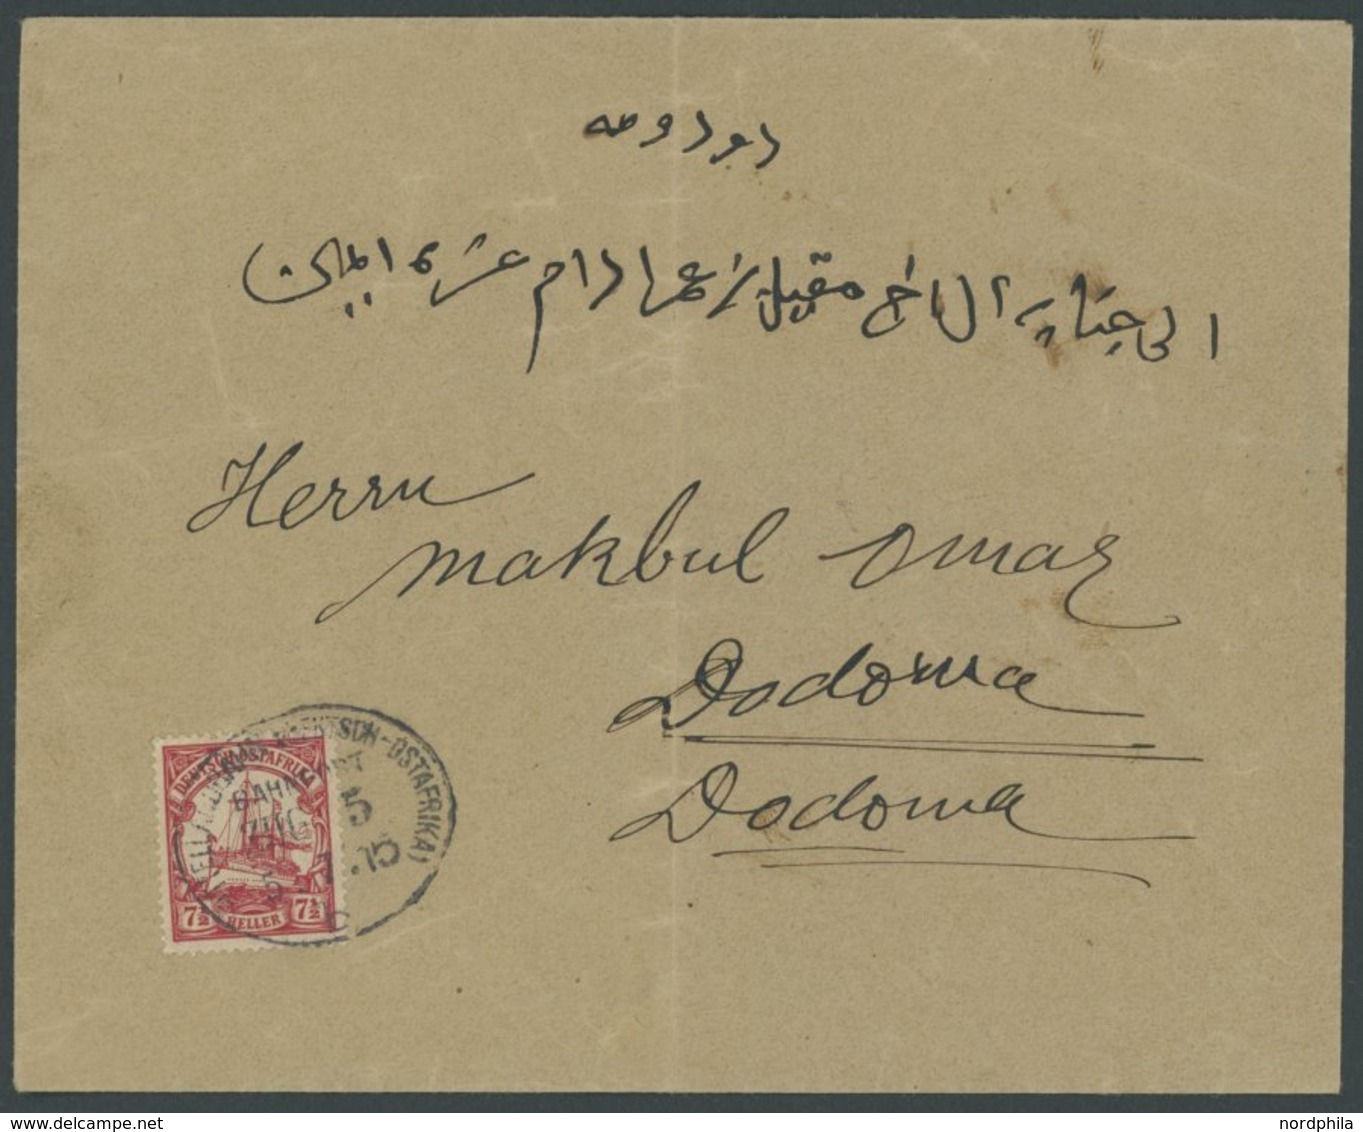 دودومه
الى جناب الاخ مقبل بن عمر دام عزه امين
Herrn
Makbul Omar
Dodoma
Dodoma
DEUTSCH-OSTAFRIKA)
BAHNPOST
ZUG 5
5 7.15
C
DEUTSCH-OSTAFRIKA
7½ HELLER 7½
delcampe.net
nordphila